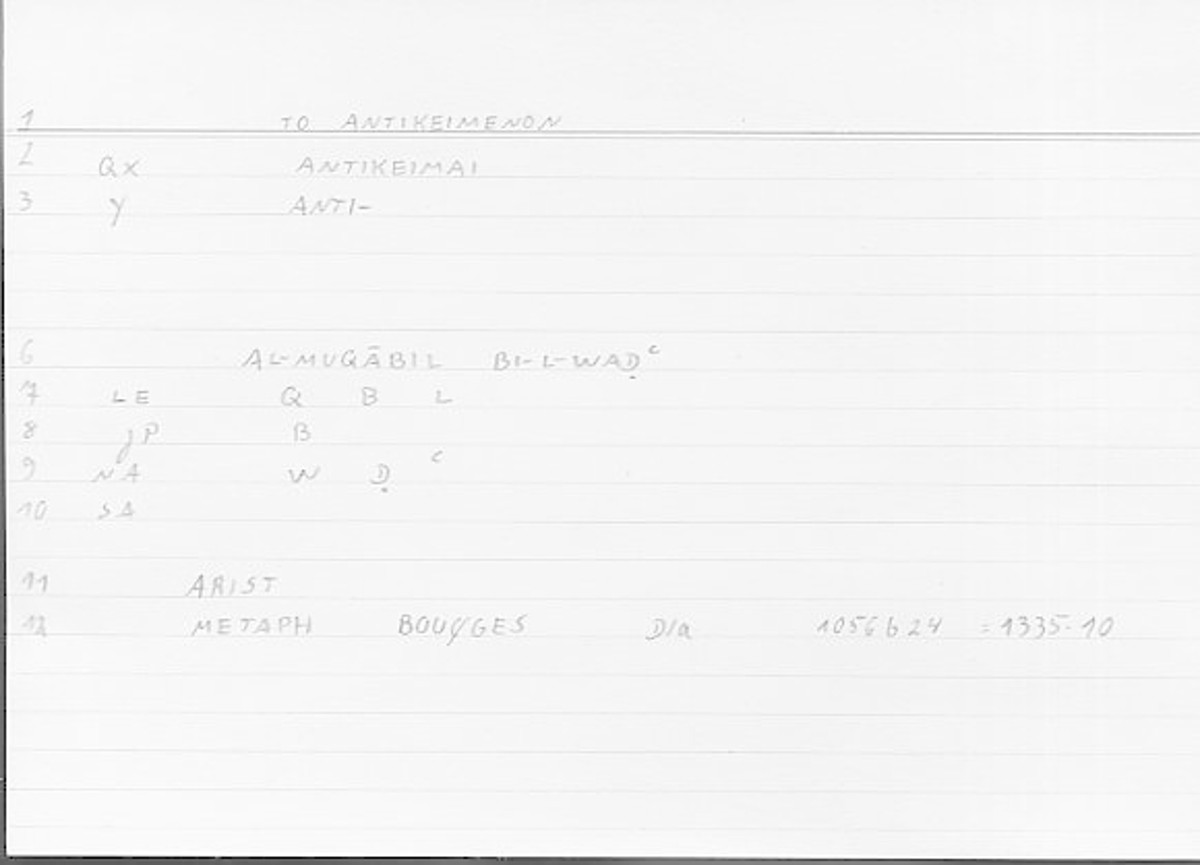 1 TO ANTIKEIMENON
2 Qx ANTIKEIMAI
3 y ANTI-
6 AL-MUQĀBIL BI-L-WAḌᶜ
7 LE Q B L
8 jP B
9 NA W Ḍ ᶜ
10 SA
11 ARIST
12 METAPH BOUYGES D/a 1056 b 24 = 1335.10